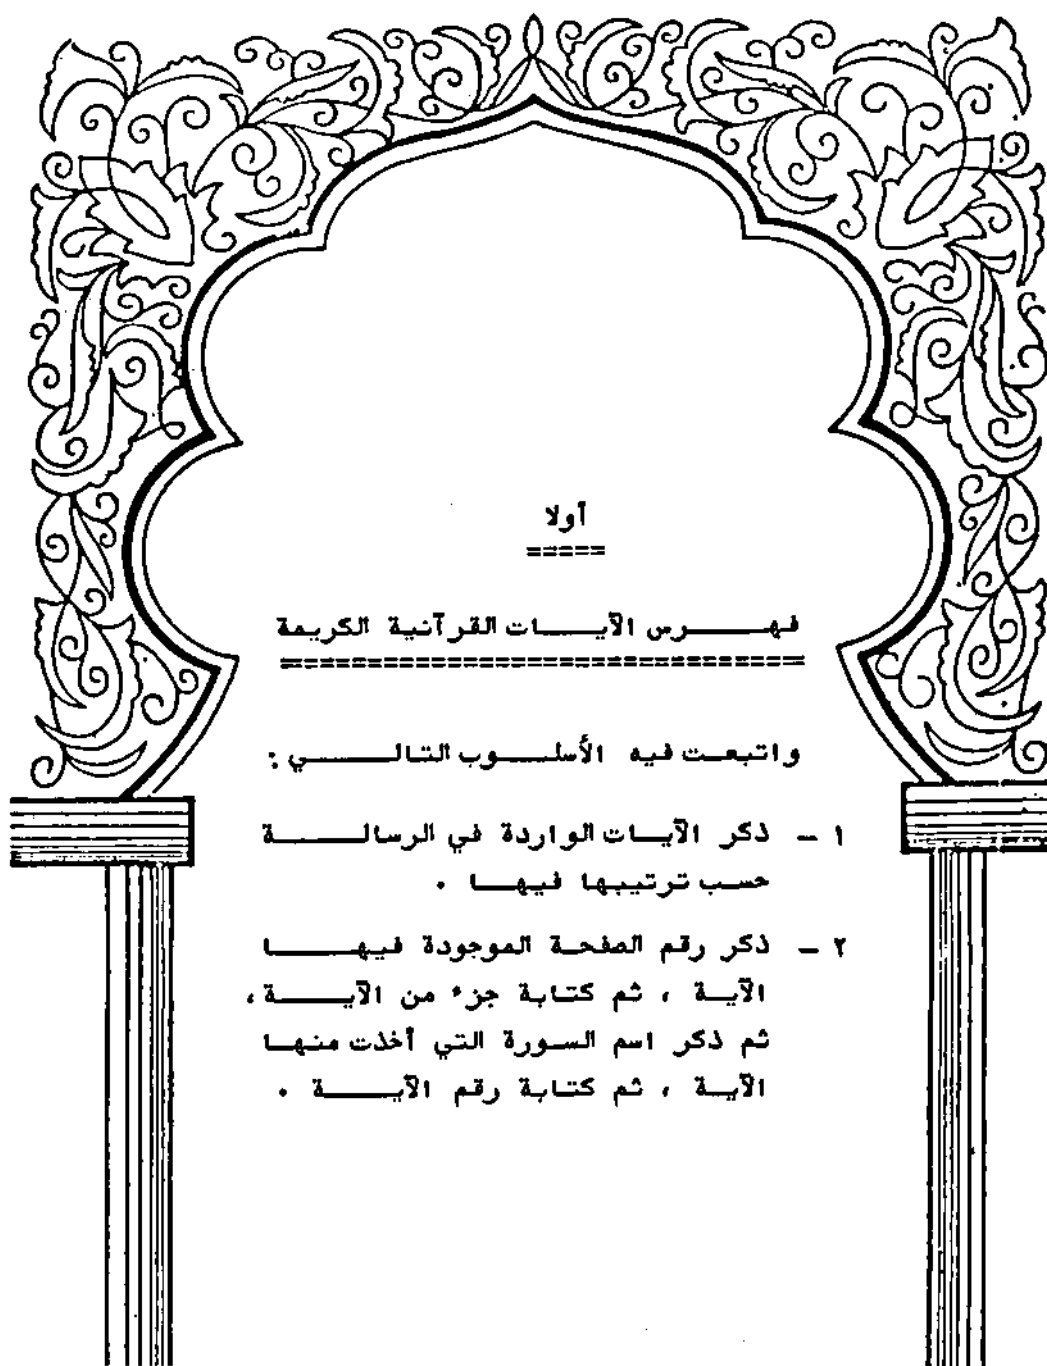 أولا
فهرس الآيات القرآنية الكريمة
واتبعت فيه الأسلوب التالي :
١ - ذكر الآيات الواردة في الرسالة
حسب ترتيبها فيها .
٢ - ذكر رقم الصفحة الموجودة فيها
الآية ، ثم كتابة جزء من الآية ،
ثم ذكر اسم السورة التي أخذت منها
الآية ، ثم كتابة رقم الآية .